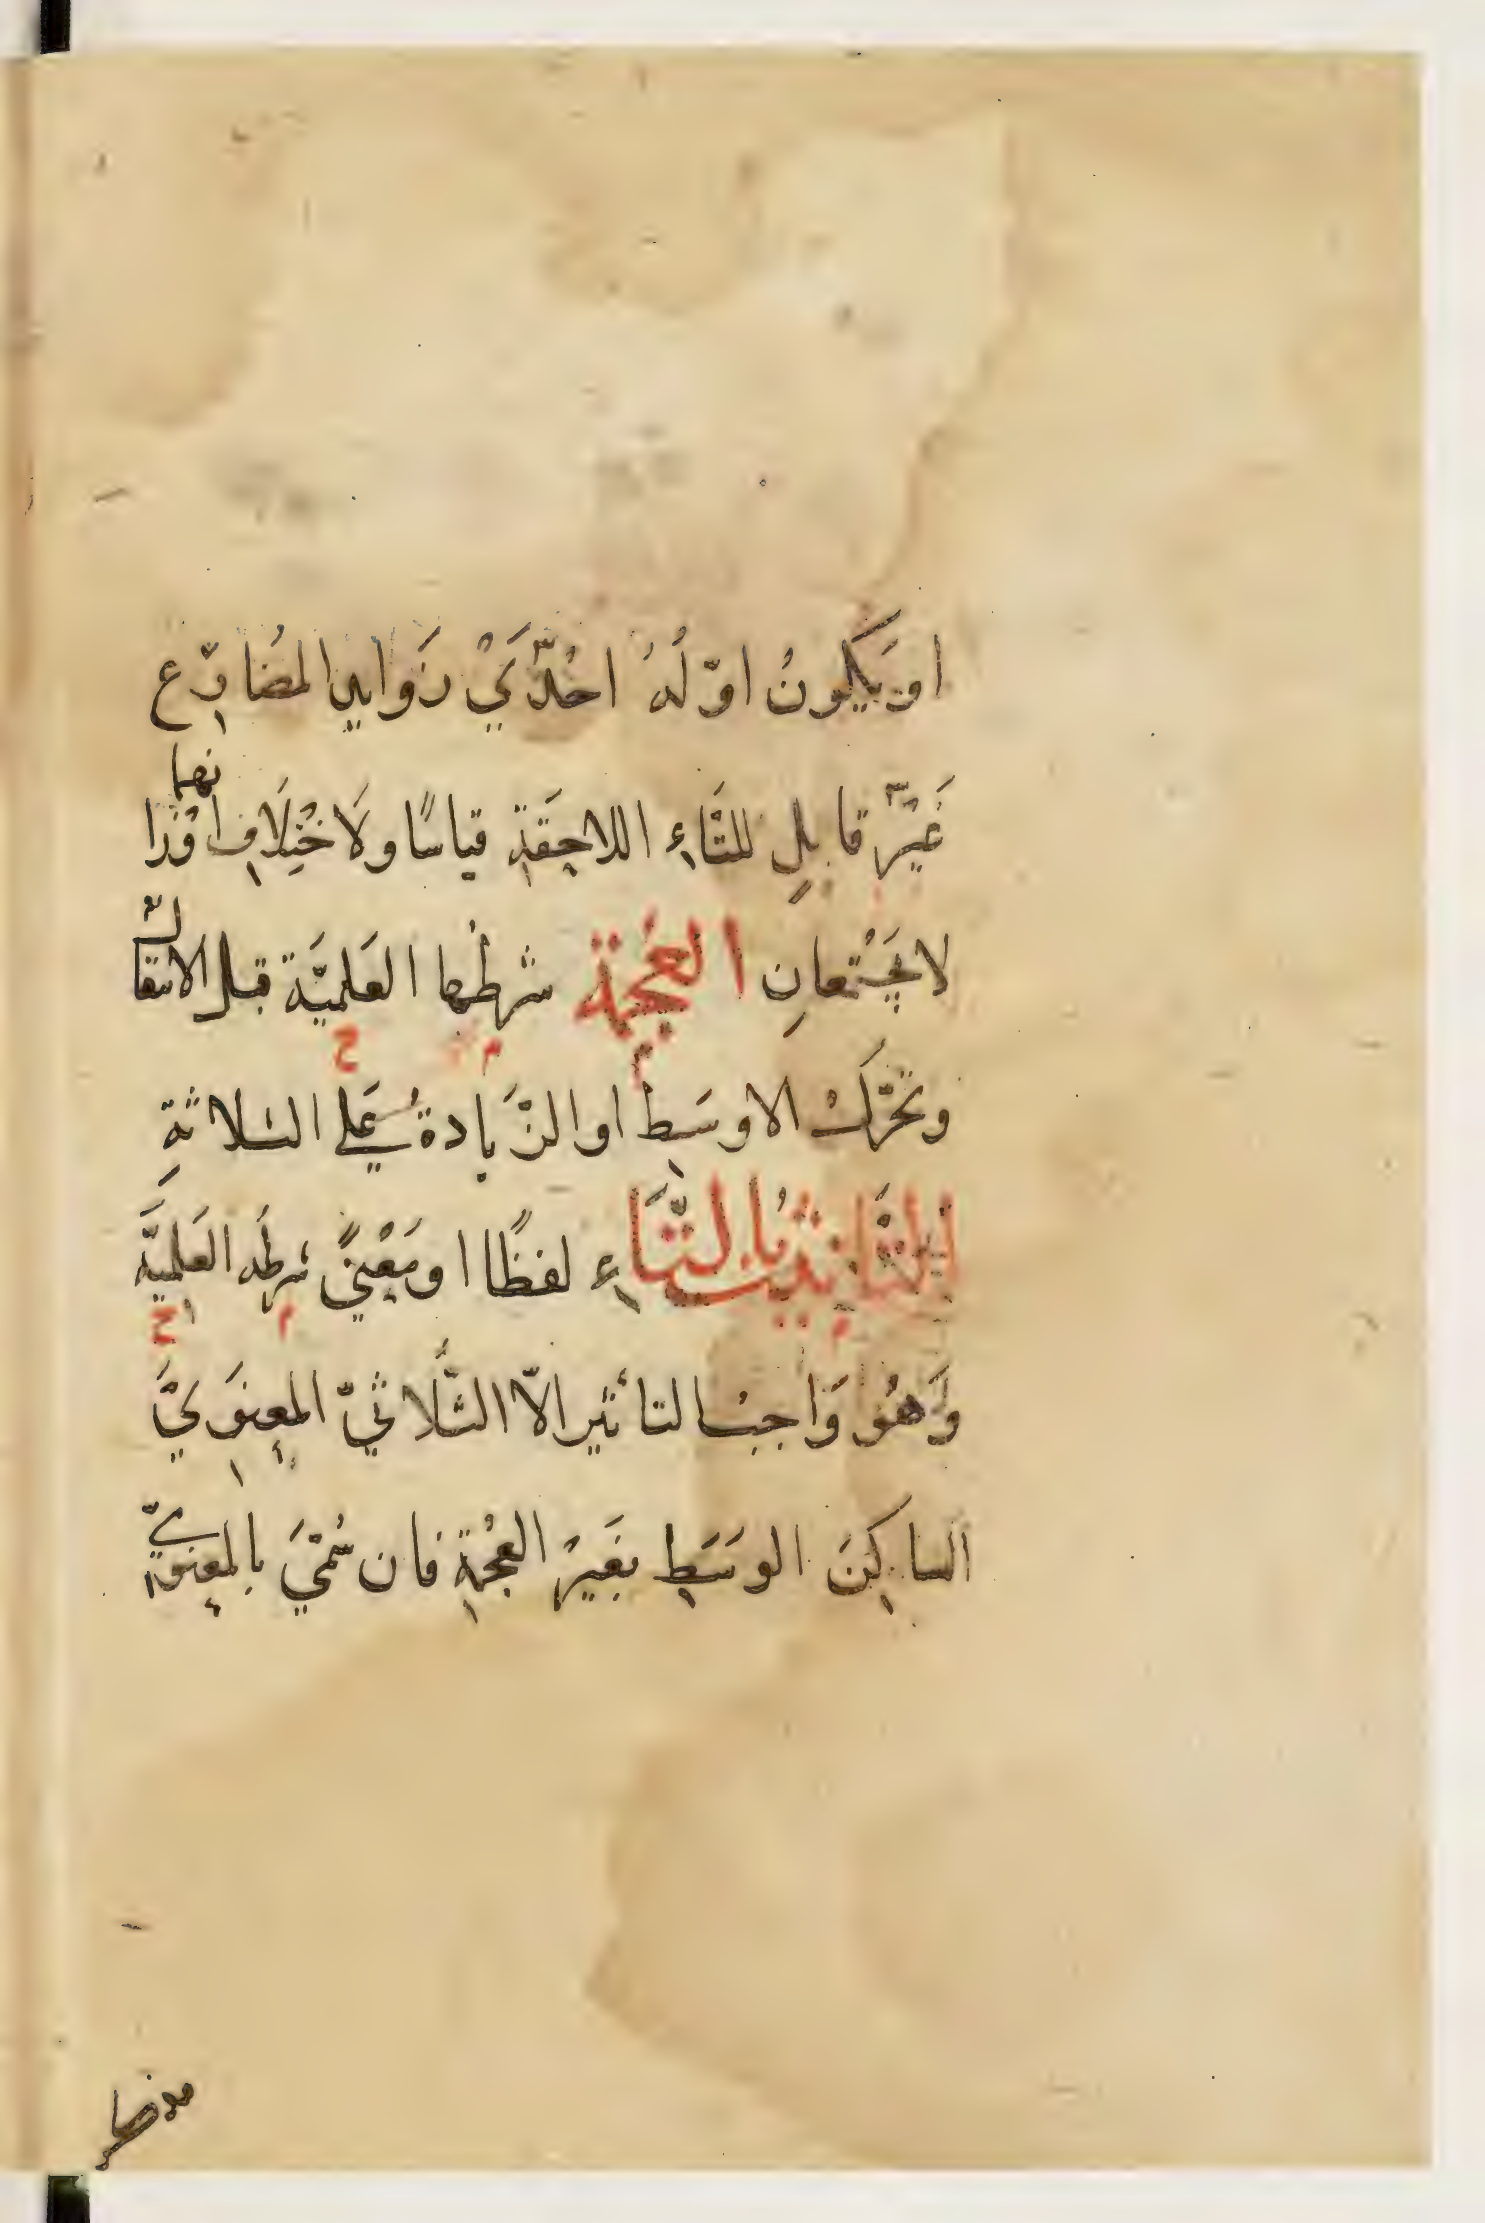 اويَكونُ اوّلُهُ احْدَيْ زَوايد المُضارِع
غَيْرَ قابلٍ للتَّاءِ اللاحِقَةِ قياسًا ولَاخْتِلَافِ اوْزانهما
لا يَجْتمعانِ العُجْمة شرطُها العَلميَّة قبل الانتقال
وتحَرّكُ الاوسَطِ اوالزّيَادة عَلي الثلاثةِ
التَّانيثُ بالتَّاءِ لفظًا اومَعْنيً شرطَه العَلِميَّه
وَهُو وَاجبُ التاثير الاّ الثّلاثيَّ المعنَويَّ
الساكِنَ الوسَطِ بغَيرْ العُجْمةِ فان سُمّيَ بالمعنويِّ